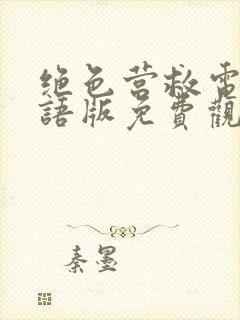 绝色营救电
語版免費觀
秦墨